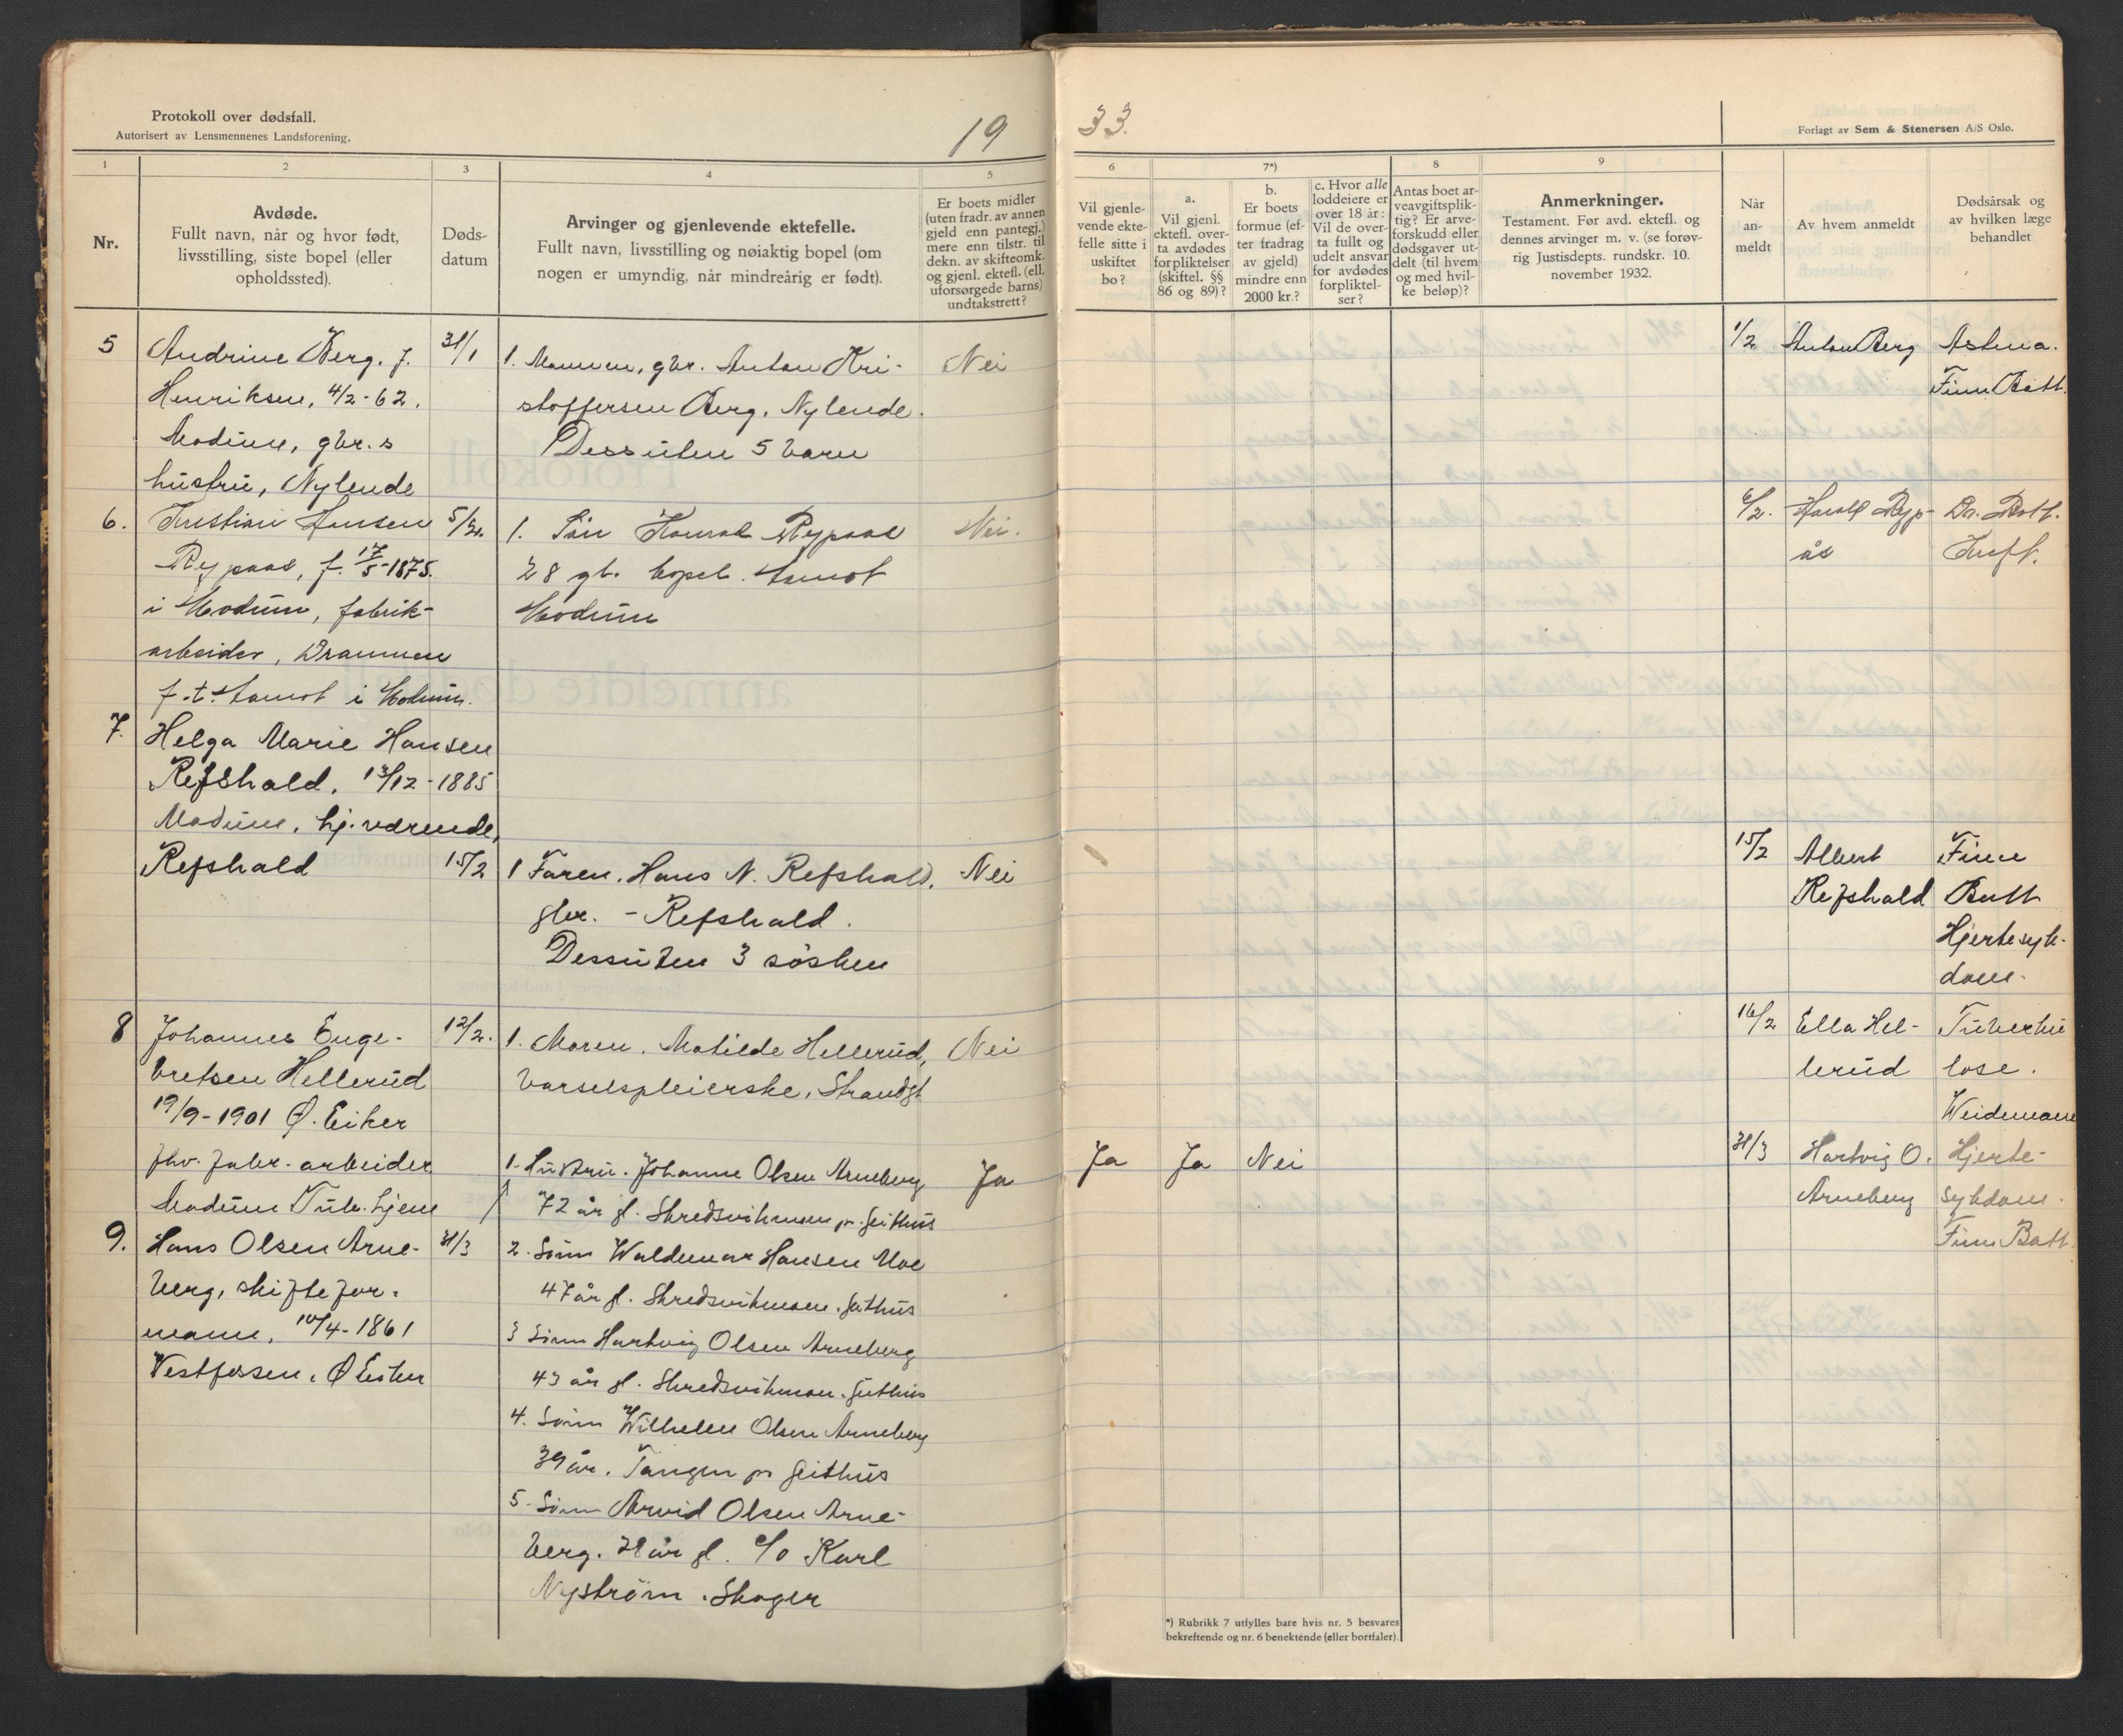 Protokoll over dødsfall.
Autorisert av Lensmennenes Landsforening.
19
1
2
3
4
5
Nr.
Avdøde.
Fullt navn, når og hvor født,
livsstilling, siste bopel (eller
opholdssted).
Døds-
datum
Arvinger og gjenlevende ektefelle.
Fullt navn, livsstilling og nøiaktig bopel (om
nogen er umyndig, når mindreårig er født).
Er boets midler
(uten fradr. av annen
gjeld enn pantegj.)
mere enn tilstr. til
dekn. av skifteomk.
og gjenl. ektefl. (ell.
uforsørgede barns)
undtakstrett?
5
Andrine Berg. f.
Henriksen, 4/2-62.
Modum, gbr.s
hustru, Nylende
31/1
1. Mannen, gbr. Anton Kri-
stoffersen Berg, Nylende.
Dessuten 5 barn
Nei
6.
Kristian Hansen
Rypaas, f. 17/5-1875.
i Modum, fabrik-
arbeider, Drammen
f.t. Aamot i Modum.
5/2.
1. Søn Rypaas
28 gl. bopel. Aamot
Modum
Nei.
7.
Helga Marie Hansen
Refshald, 13/12-1885
Modum, hj.værende,
Refshald
15/2
1 Faren, Hans N. Refshald,
gbr. - Refshald.
Dessuten 3 søsken
Nei
8
Johannes Enge-
bretsen Hellerud
19/9-1901 Ø. Eiker
fhv. fabr. arbeider
Modum Tub. hjem
12/2.
1. Moren, Matilde Hellerud,
barselspleierske, Strandgt
Nei
9.
Hans Olsen Arne-
berg, skiftefor-
mann, 10/4-1861
Vestfossen, Ø Eiker
31/3
1. Hustru. Johanne Olsen Arneberg
72 år gl. Skredsvikmoen pr. Geithus
2. Sønn Waldemar Hansen Moe
47 år gl. Skredsvikmoen. Geithus
3 Sønn Hartvig Olsen Arneberg
43 år gl. Skredsvikmoen. Geithus
4. Sønn Wilhelm Olsen Arneberg
39 år. Tangen pr Geithus
5. Sønn Arvid Olsen Arne-
berg. 31 år gl. c/o Karl
Nystrøm. Skoger
Ja
33.
Forlagt av Sem & Stenersen A/S Oslo.
6
7*)
8
9
Vil gjenle-
vende ekte-
felle sitte i
uskiftet
bo?
a.
Vil gjenl.
ektefl. over-
ta avdødes
forpliktelser
(skiftel. §§
86 og 89)?
b.
Er boets
formue (ef-
ter fradrag
av gjeld)
mindre enn
2000 kr.?
c. Hvor alle
loddeiere er
over 18 år:
Vil de over-
ta fullt og
udelt ansvar
for avdødes
forpliktel-
ser?
Antas boet ar-
veavgiftsplik-
tig? Er arve-
forskudd eller
dødsgaver ut-
delt (til hvem
og med hvil-
ke beløp)?
Anmerkninger.
Testament. Før avd. ektefl. og
dennes arvinger m. v. (se forøv-
rig Justisdepts. rundskr. 10.
november 1932.
Når
an-
meldt
Av hvem anmeldt
Dødsårsak og
av hvilken læge
behandlet
1/2
Anton Berg
Astma.
Finn Batt.
6/2.
Harald Ryp-
ås
Dr. Batt.
Kreft.
15/2
Albert
Refshald
Finn
Batt
Hjertesyk-
dom.
16/2
Ella Hel-
lerud
Tuberku
lose.
Weidemann
Ja
Ja
Nei
31/3
Hartvig O.
Arneberg
Hjerte-
sykdom.
Finn Batt.
*) Rubrikk 7 utfylles bare hvis nr. 5 besvares
bekreftende og nr. 6 benektende (eller bortfaler).